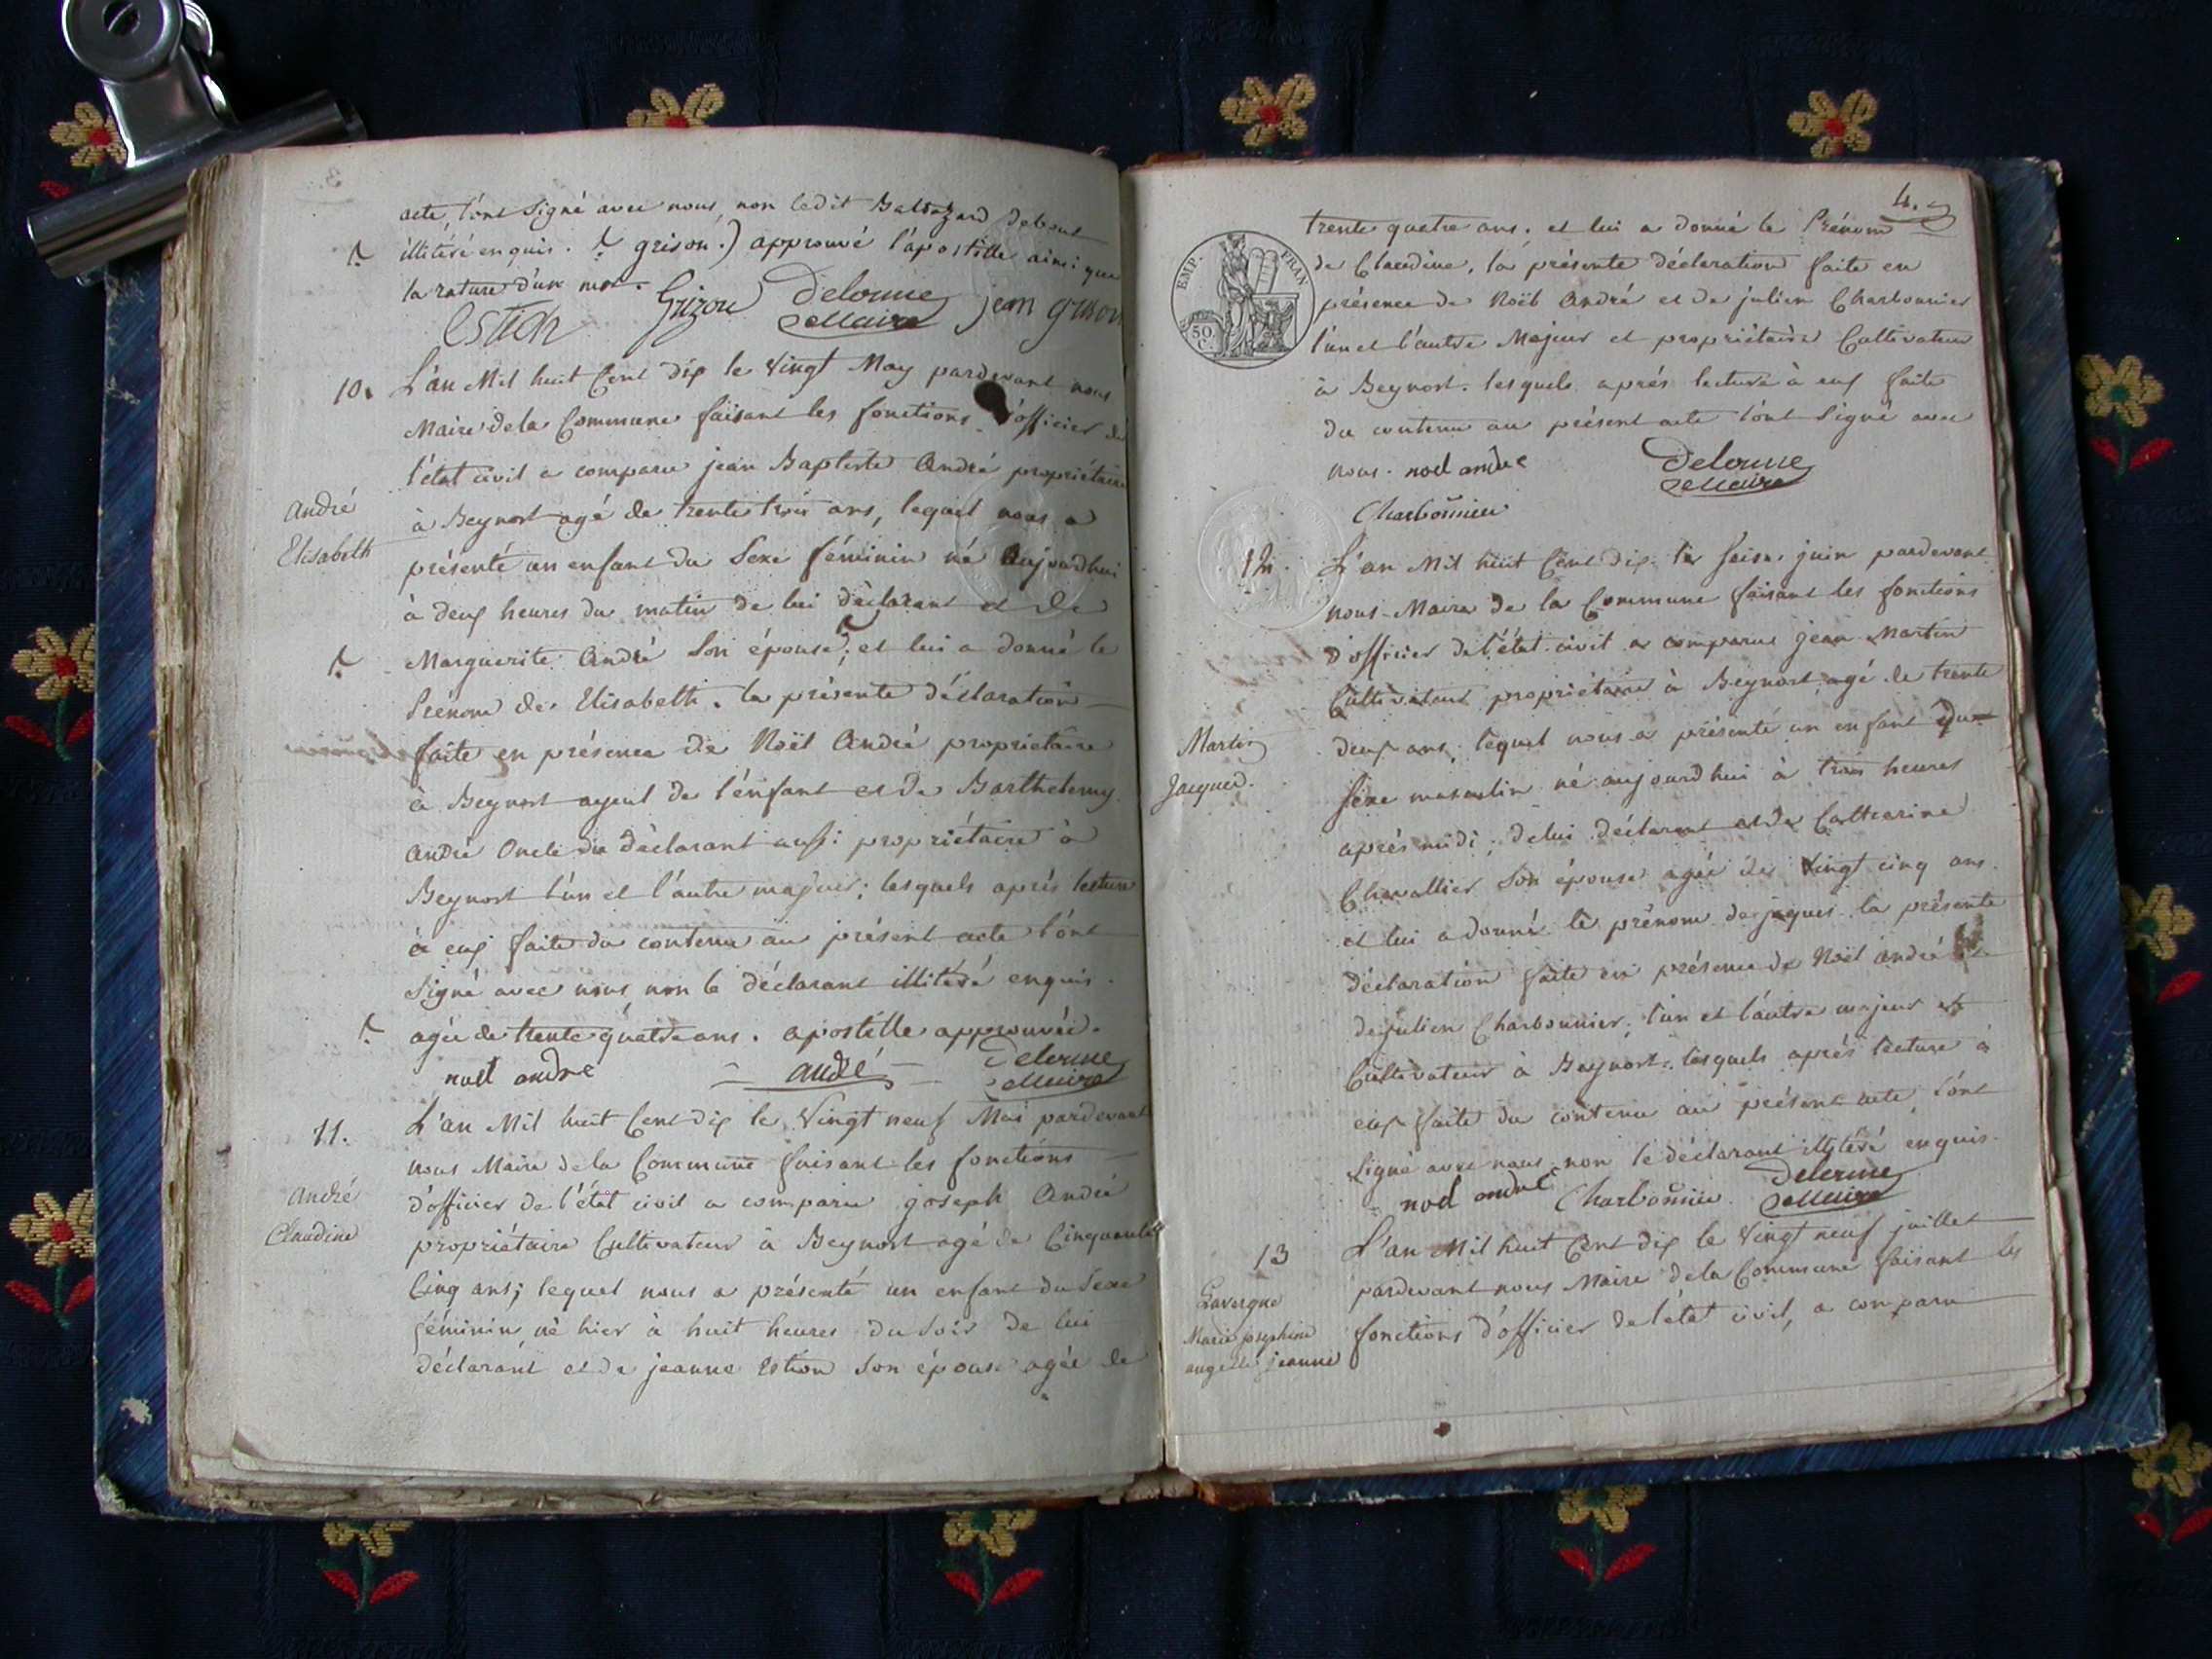 acte, l'ont signé avec nous, non ledit Baltazard debout
illitéré enquis. grison.) approuvé l'apostille ainsi que
la rature d'un mot.
Grizou Delorme jean grison
Le Maire
10. L'an Mil huit Cent dix le Vingt May pardevant nous
Maire de la Commune faisant les fonctions d'officier de
l'état civil a comparu jean Baptiste André propriétaire
André
à Beynost agé de trente trois ans, lequel nous a
Elisabeth
présenté un enfant du Sexe féminin né aujourdhui
à deux heures du matin de lui déclarant et de
Marguerite André Son épouse; et lui a donné le
Prénom de Elisabeth. la présente déclaration
faite en présence de Noël André propriétaire
à Beynost ayeul de l'énfant et de Barthelemy
André Oncle du déclarant aussi propriétaire à
Beynost l'un et l'autre majeur; lesquels aprés lecture
à eux faite du contenu au présent acte l'ónt
Signé avec nous, non le déclarant illitéré enquis.
agée de trente quatre ans. apostille approuvée.
noel andre André Delorme
Le Maire
11. L'an Mil huit Cent dix le Vingt neuf Mai pardevant
nous Maire de la Commune faisant les fonctions
André
d'officier de l'état civil a comparu joseph André
Claudine
propriétaire Cultivateur à Beynost agé de Cinquante
Cinq ans; lequel nous a présenté un enfant du Sexe
féminin, né hier à huit heures du Soir de lui
déclarant et de jeanne Estion Son épouse agée de
4.
trente quatre ans. et lui a donné le Prénom
de Claudine, la présente déclaration faite en
présence de Noël André et de julien Charbonnier
l'un et l'autre Majeur et propriétaire Cultivateur
à Beynost. lesquels aprés lecture à eux faite
du contenu au présent acte l'ónt Signé avec
nous. noel andre Delorme
Le Maire
Charbonnier
EMP. FRAN
50 C.
12. L'an Mil huit Cent dix le Seize juin pardevant
nous Maire de la Commune faisant les fonctions
d'officier de l'état civil a comparu jean Martin
Cultivateur propriétaire à Beynost, agé de trente
Martin
deux ans, lequel nous a présenté un enfant du
Jacques.
Sexe masculin né aujourdhui à trois heures
aprés midi; de lui déclarant et de Cattherine
Chavallier Son épouse agée de Vingt cinq ans.
et lui a donné le prénom de jaques. la présente
déclaration faite en présence de Noël André et
de julien Charbonnier; l'un et l'autre majeur et
Cultivateur à Beynost. lesquels aprés lecture à
eux faite du contenu au présent acte, l'ónt
Signé avec nous, non le déclarant illitéré enquis.
noel andre Charbonnier Delorme
Le Maire
13 L'an Mil huit Cent dix le Vingt neuf juillet
pardevant nous Maire de la Commune faisant les
Lavergne
fonctions d'officier de l'état civil, a comparu
Marie josephine
angele jeanne